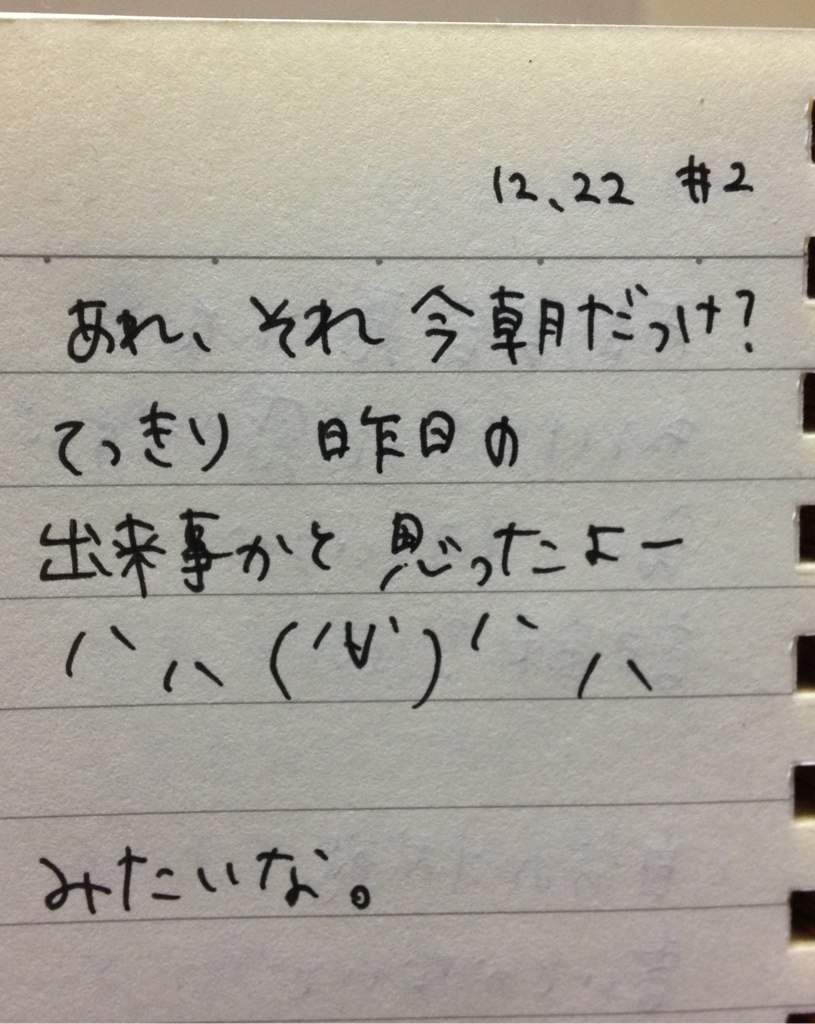 12、22 #2
あれ、それ今朝だっけ?
てっきり 昨日の
出来事かと思ったよー
ハハ(´∀`)ハハ
みたいな。